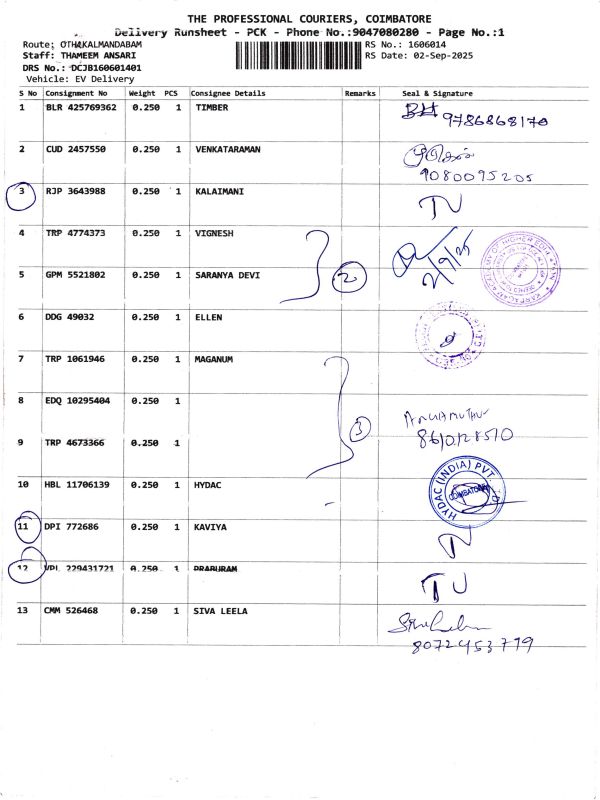 THE PROFESSIONAL COURIERS, COIMBATORE
Delivery Runsheet - PCK - Phone No.:9047080280 - Page No.:1
Route: OTHAKALMANDABAM
RS No.: 1606014
Staff: THAMEEM ANSARI
RS Date: 02-Sep-2025
DRS No.: DCJB160601401
Vehicle: EV Delivery
S No Consignment No Weight PCS Consignee Details Remarks Seal & Signature
1 BLR 425769362 0.250 1 TIMBER
9786868170
2 CUD 2457550 0.250 1 VENKATARAMAN
9080095205
3 RJP 3643988 0.250 1 KALAIMANI
4 TRP 4774373 0.250 1 VIGNESH
2/9/25
5 GPM 5521802 0.250 1 SARANYA DEVI
2
6 DDG 49032 0.250 1 ELLEN
7 TRP 1061946 0.250 1 MAGANUM
8 EDQ 10295404 0.250 1
3
9 TRP 4673366 0.250 1
10 HBL 11706139 0.250 1 HYDAC
HYDAC (INDIA) PVT. LTD
COIMBATORE
11 DPI 772686 0.250 1 KAVIYA
12 VPL 229431721 0.250 1 PRABURAM
13 CMM 526468 0.250 1 SIVA LEELA
8072453779